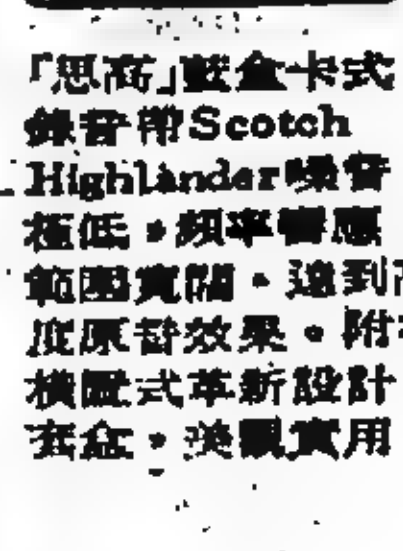 「思高」藍盒卡式
錄音帶Scotch
Highlander噪音
極低，頻率響應
範圍寬闊。達到高
度原音效果。附有
橫置式革新設計
套盒，美觀實用